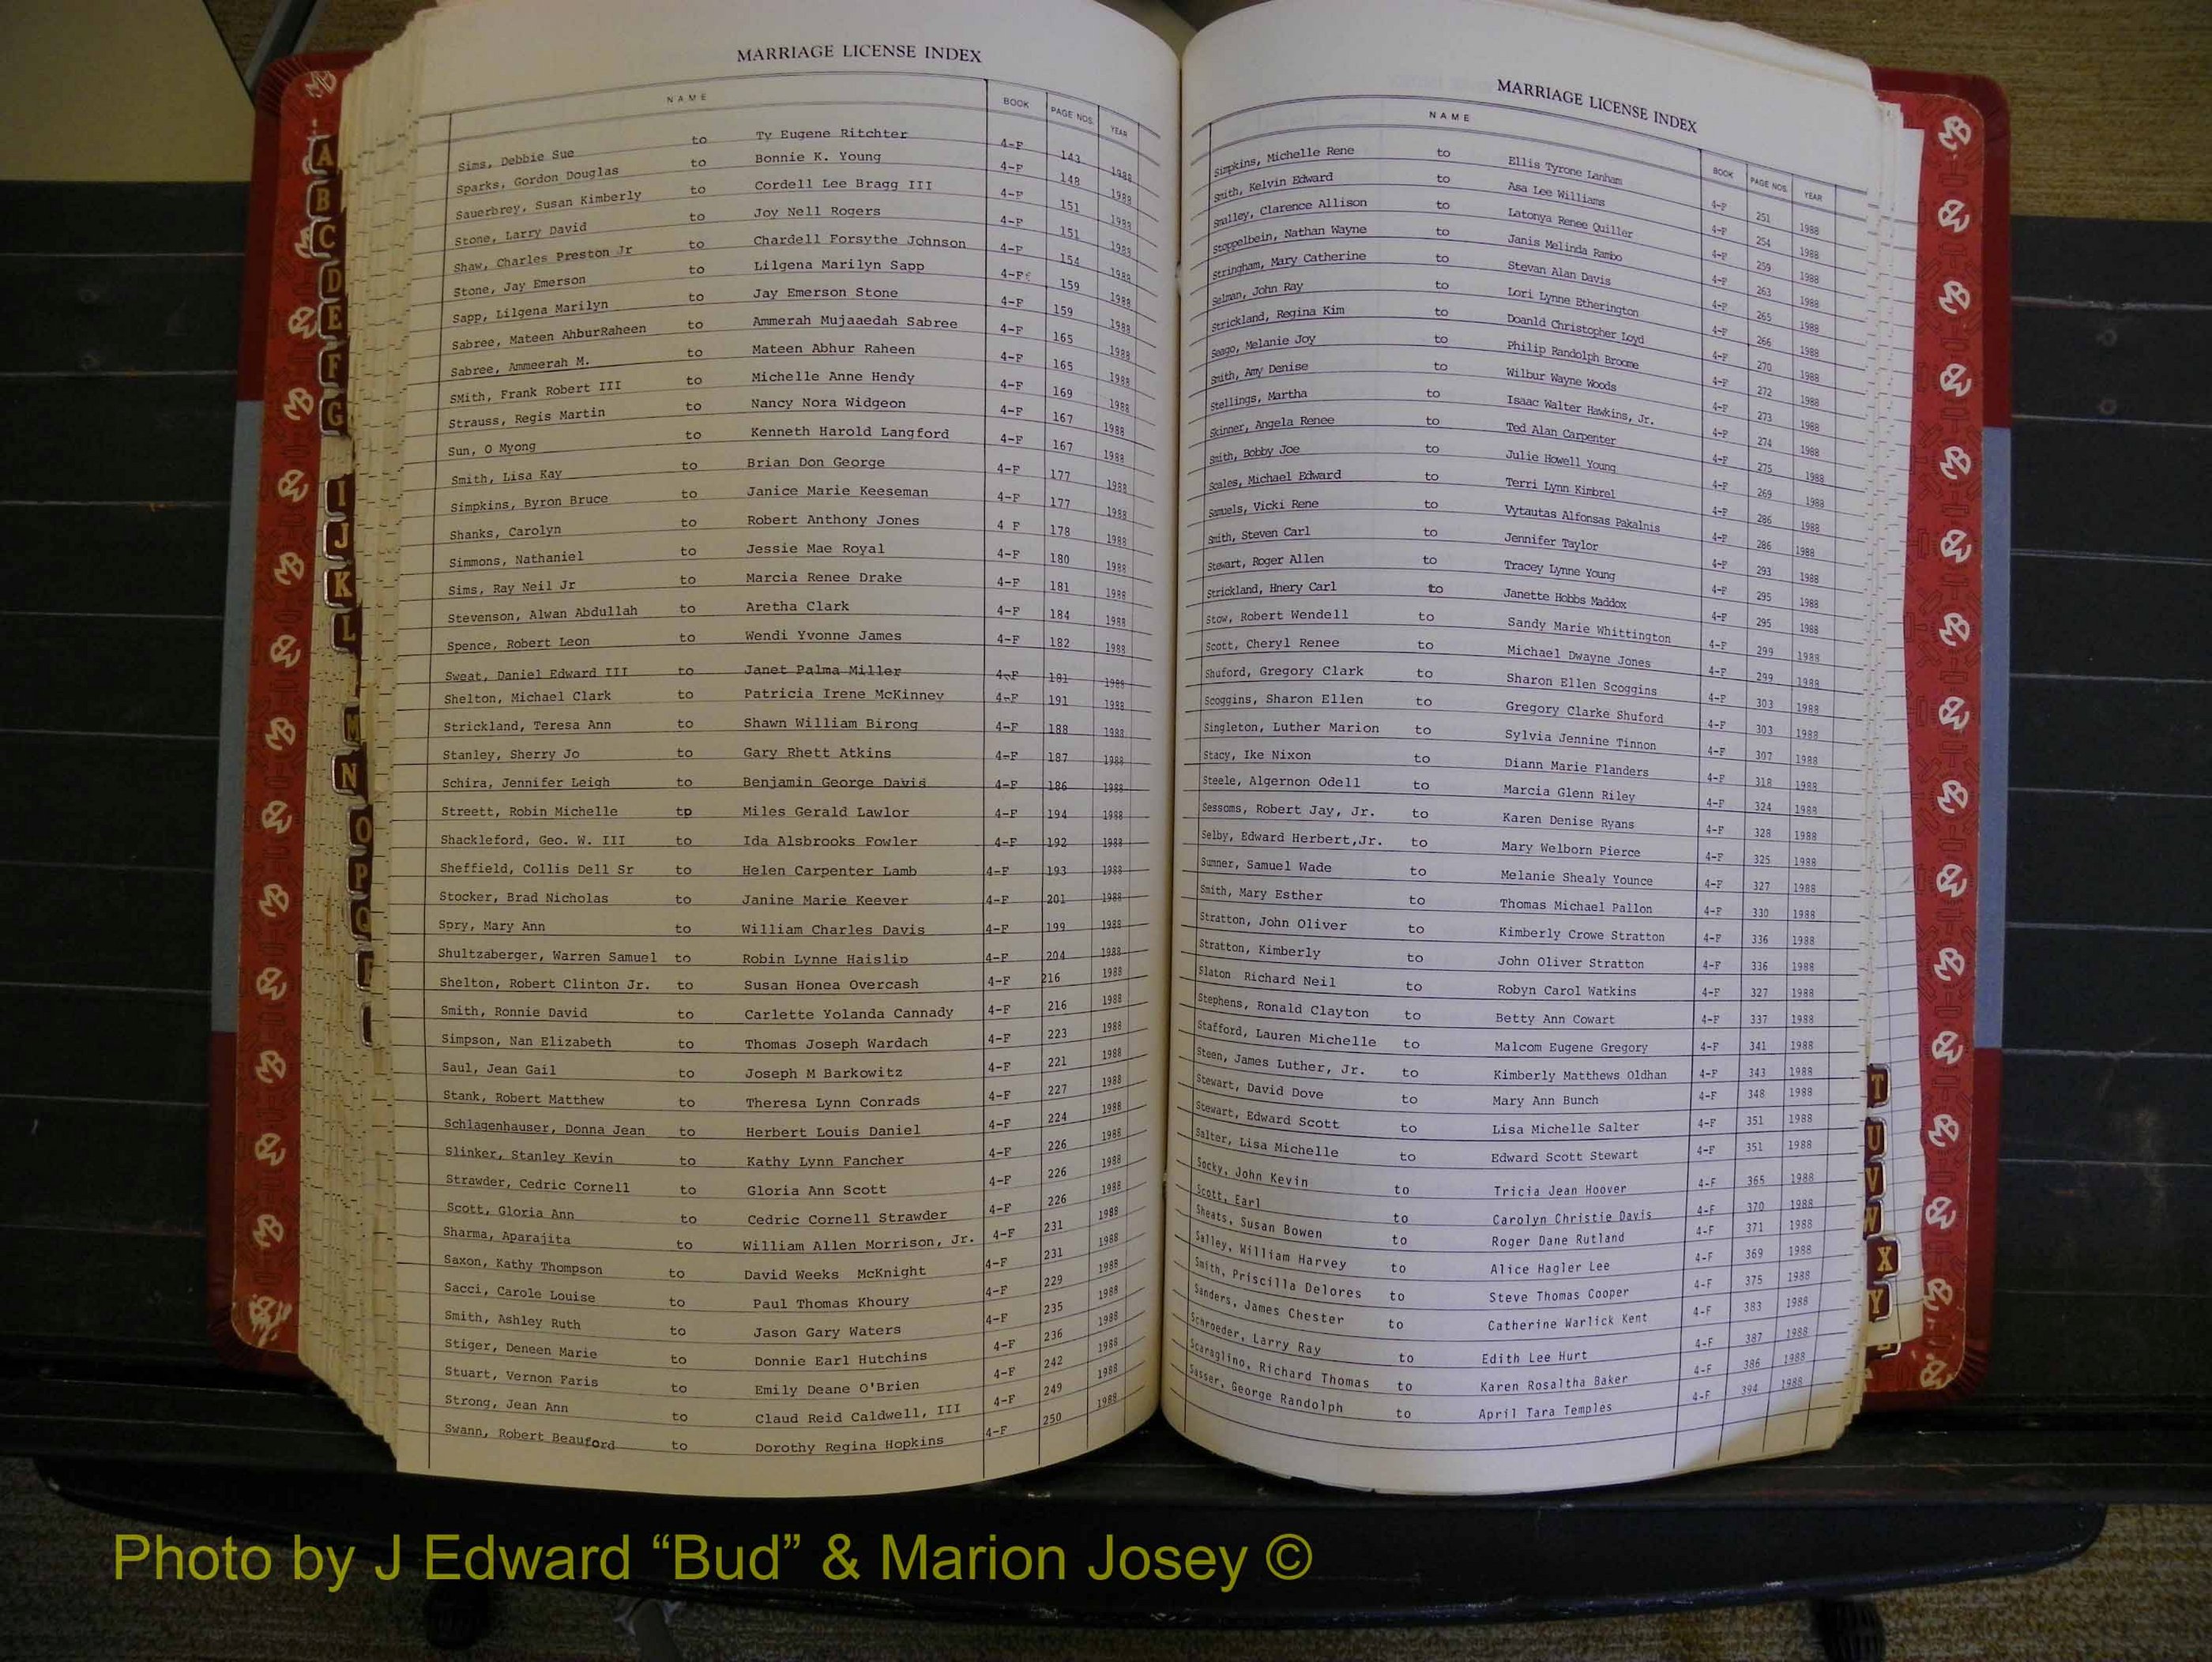 MARRIAGE LICENSE INDEX
NAME BOOK PAGE NOS. YEAR
Sims, Debbie Sue to Ty Eugene Ritchter 4-F 143 1988
Sparks, Gordon Douglas to Bonnie K. Young 4-F 148 1988
Sauerbrey, Susan Kimberly to Cordell Lee Bragg III 4-F 151 1988
Stone, Larry David to Joy Nell Rogers 4-F 151 1988
Shaw, Charles Preston Jr to Chardell Forsythe Johnson 4-F 154 1988
Stone, Jay Emerson to Lilgena Marilyn Sapp 4-F 159 1988
Sapp, Lilgena Marilyn to Jay Emerson Stone 4-F 159 1988
Sabree, Mateen AhburRaheen to Ammerah Mujaaedah Sabree 4-F 165 1988
Sabree, Ammeerah M. to Mateen Abhur Raheen 4-F 165 1988
SMith, Frank Robert III to Michelle Anne Hendy 4-F 169 1988
Strauss, Regis Martin to Nancy Nora Widgeon 4-F 167 1988
Sun, O Myong to Kenneth Harold Langford 4-F 167 1988
Smith, Lisa Kay to Brian Don George 4-F 177 1988
Simpkins, Byron Bruce to Janice Marie Keeseman 4-F 177 1988
Shanks, Carolyn to Robert Anthony Jones 4 F 178 1988
Simmons, Nathaniel to Jessie Mae Royal 4-F 180 1988
Sims, Ray Neil Jr to Marcia Renee Drake 4-F 181 1988
Stevenson, Alwan Abdullah to Aretha Clark 4-F 184 1988
Spence, Robert Leon to Wendi Yvonne James 4-F 182 1988
Sweat, Daniel Edward III to Janet Palma Miller 4-F 181 1988
Shelton, Michael Clark to Patricia Irene McKinney 4-F 191 1988
Strickland, Teresa Ann to Shawn William Birong 4-F 188 1988
Stanley, Sherry Jo to Gary Rhett Atkins 4-F 187 1988
Schira, Jennifer Leigh to Benjamin George Davis 4-F 186 1988
Streett, Robin Michelle tp Miles Gerald Lawlor 4-F 194 1988
Shackleford, Geo. W. III to Ida Alsbrooks Fowler 4-F 192 1988
Sheffield, Collis Dell Sr to Helen Carpenter Lamb 4-F 193 1988
Stocker, Brad Nicholas to Janine Marie Keever 4-F 201 1988
Spry, Mary Ann to William Charles Davis 4-F 199 1988
Shultzaberger, Warren Samuel to Robin Lynne Haislip 4-F 204 1988
Shelton, Robert Clinton Jr. to Susan Honea Overcash 4-F 216 1988
Smith, Ronnie David to Carlette Yolanda Cannady 4-F 216 1988
Simpson, Nan Elizabeth to Thomas Joseph Wardach 4-F 223 1988
Saul, Jean Gail to Joseph M Barkowitz 4-F 221 1988
Stank, Robert Matthew to Theresa Lynn Conrads 4-F 227 1988
Schlagenhauser, Donna Jean to Herbert Louis Daniel 4-F 224 1988
Slinker, Stanley Kevin to Kathy Lynn Fancher 4-F 226 1988
Strawder, Cedric Cornell to Gloria Ann Scott 4-F 226 1988
Scott, Gloria Ann to Cedric Cornell Strawder 4-F 226 1988
Sharma, Aparajita to William Allen Morrison, Jr. 4-F 231 1988
Saxon, Kathy Thompson to David Weeks McKnight 4-F 231 1988
Sacci, Carole Louise to Paul Thomas Khoury 4-F 229 1988
Smith, Ashley Ruth to Jason Gary Waters 4-F 235 1988
Stiger, Deneen Marie to Donnie Earl Hutchins 4-F 236 1988
Stuart, Vernon Faris to Emily Deane O'Brien 4-F 242 1988
Strong, Jean Ann to Claud Reid Caldwell, III 4-F 249 1988
Swann, Robert Beauford to Dorothy Regina Hopkins 4-F 250 1988
MARRIAGE LICENSE INDEX
NAME BOOK PAGE NOS. YEAR
Simpkins, Michelle Rene to Ellis Tyrone Lanham 4-F 251 1988
Smith, Kelvin Edward to Asa Lee Williams 4-F 254 1988
Smalley, Clarence Allison to Latonya Renee Quiller 4-F 259 1988
Stoppelbein, Nathan Wayne to Janis Melinda Rambo 4-F 263 1988
Stringham, Mary Catherine to Stevan Alan Davis 4-F 265 1988
Selman, John Ray to Lori Lynne Etherington 4-F 266 1988
Strickland, Regina Kim to Doanld Christopher Loyd 4-F 270 1988
Seago, Melanie Joy to Philip Randolph Broome 4-F 272 1988
Smith, Amy Denise to Wilbur Wayne Woods 4-F 273 1988
Stellings, Martha to Isaac Walter Hawkins, Jr. 4-F 274 1988
Skinner, Angela Renee to Ted Alan Carpenter 4-F 275 1988
Smith, Bobby Joe to Julie Howell Young 4-F 269 1988
Scales, Michael Edward to Terri Lynn Kimbrel 4-F 286 1988
Samuels, Vicki Rene to Vytautas Alfonsas Pakalnis 4-F 286 1988
Smith, Steven Carl to Jennifer Taylor 4-F 293 1988
Stewart, Roger Allen to Tracey Lynne Young 4-F 295 1988
Strickland, Hnery Carl to Janette Hobbs Maddox 4-F 295 1988
Stow, Robert Wendell to Sandy Marie Whittington 4-F 299 1988
Scott, Cheryl Renee to Michael Dwayne Jones 4-F 299 1988
Shuford, Gregory Clark to Sharon Ellen Scoggins 4-F 303 1988
Scoggins, Sharon Ellen to Gregory Clarke Shuford 4-F 303 1988
Singleton, Luther Marion to Sylvia Jennine Tinnon 4-F 307 1988
Stacy, Ike Nixon to Diann Marie Flanders 4-F 318 1988
Steele, Algernon Odell to Marcia Glenn Riley 4-F 324 1988
Sessoms, Robert Jay, Jr. to Karen Denise Ryans 4-F 328 1988
Selby, Edward Herbert,Jr. to Mary Welborn Pierce 4-F 325 1988
Sumner, Samuel Wade to Melanie Shealy Younce 4-F 327 1988
Smith, Mary Esther to Thomas Michael Pallon 4-F 330 1988
Stratton, John Oliver to Kimberly Crowe Stratton 4-F 336 1988
Stratton, Kimberly to John Oliver Stratton 4-F 336 1988
Slaton Richard Neil to Robyn Carol Watkins 4-F 327 1988
Stephens, Ronald Clayton to Betty Ann Cowart 4-F 337 1988
Stafford, Lauren Michelle to Malcom Eugene Gregory 4-F 341 1988
Steen, James Luther, Jr. to Kimberly Matthews Oldhan 4-F 343 1988
Stewart, David Dove to Mary Ann Bunch 4-F 348 1988
Stewart, Edward Scott to Lisa Michelle Salter 4-F 351 1988
Salter, Lisa Michelle to Edward Scott Stewart 4-F 351 1988
Socky, John Kevin to Tricia Jean Hoover 4-F 365 1988
Scott, Earl to Carolyn Christie Davis 4-F 370 1988
Sheats, Susan Bowen to Roger Dane Rutland 4-F 371 1988
Salley, William Harvey to Alice Hagler Lee 4-F 369 1988
Smith, Priscilla Delores to Steve Thomas Cooper 4-F 375 1988
Sanders, James Chester to Catherine Warlick Kent 4-F 383 1988
Schroeder, Larry Ray to Edith Lee Hurt 4-F 387 1988
Scaraglino, Richard Thomas to Karen Rosaltha Baker 4-F 386 1988
Sasser, George Randolph to April Tara Temples 4-F 394 1988
A
B
C
D
E
F
G
I
J
K
L
M
N
O
P
Q
T
U
V
W
X
Y
Photo by J Edward “Bud” & Marion Josey ©